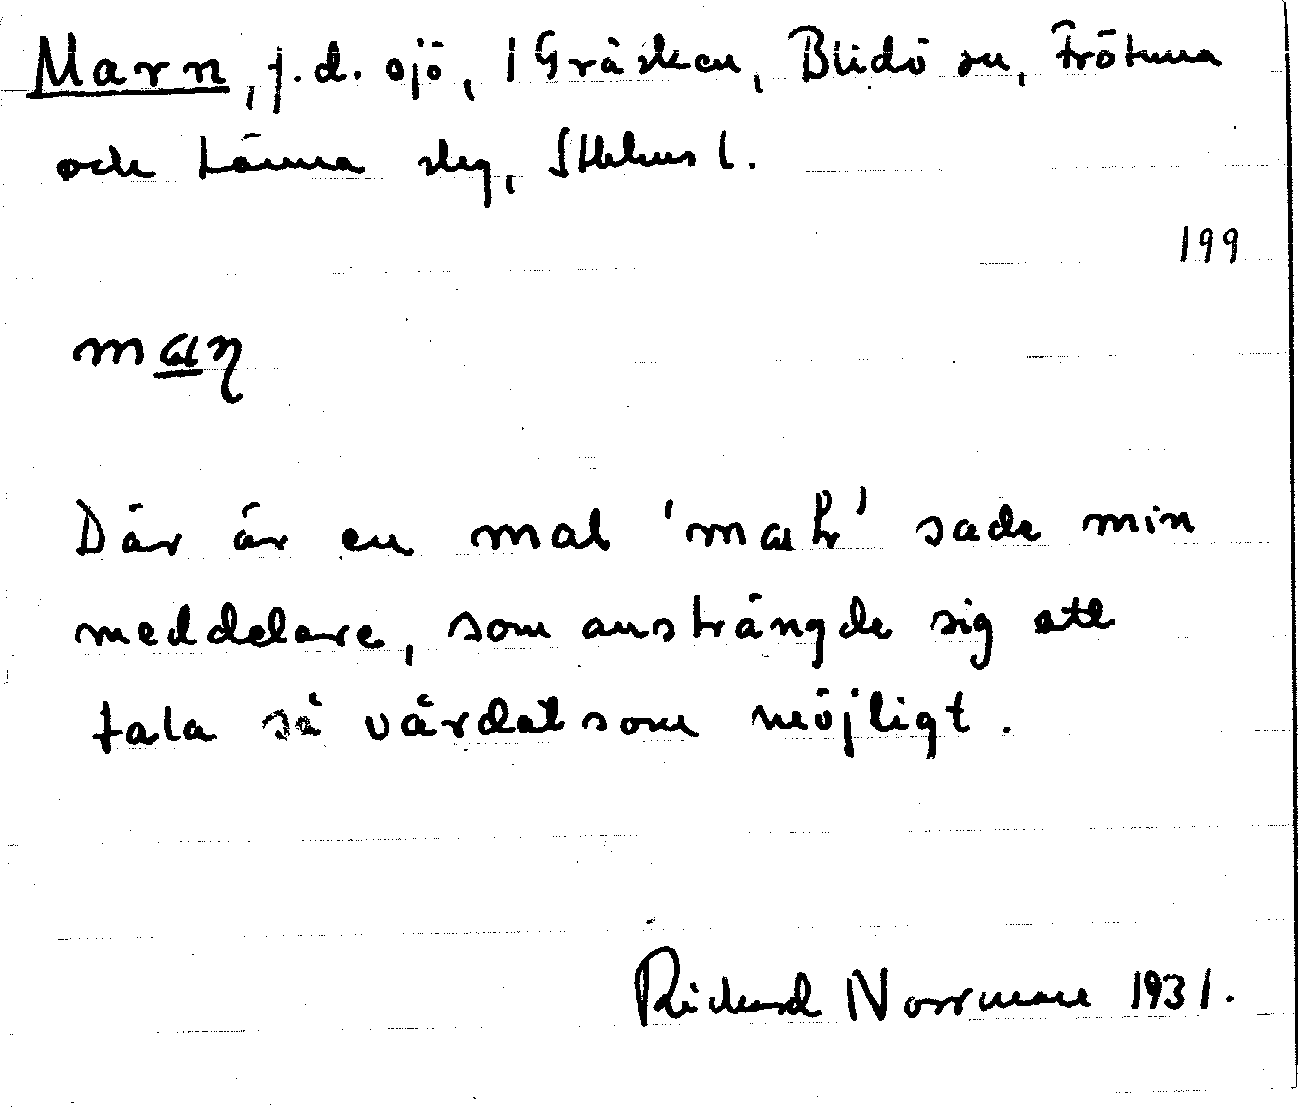 Marn, f.d. sjö, i Gräsken, Blidö sn, Frötuna
och Länna slg, Sthlms l.
199
maɳ
Där är en mal 'mak' sade min
meddelare, som ansträngde sig att
tala så vårdat som möjligt.
Rickard Norrman 1931.